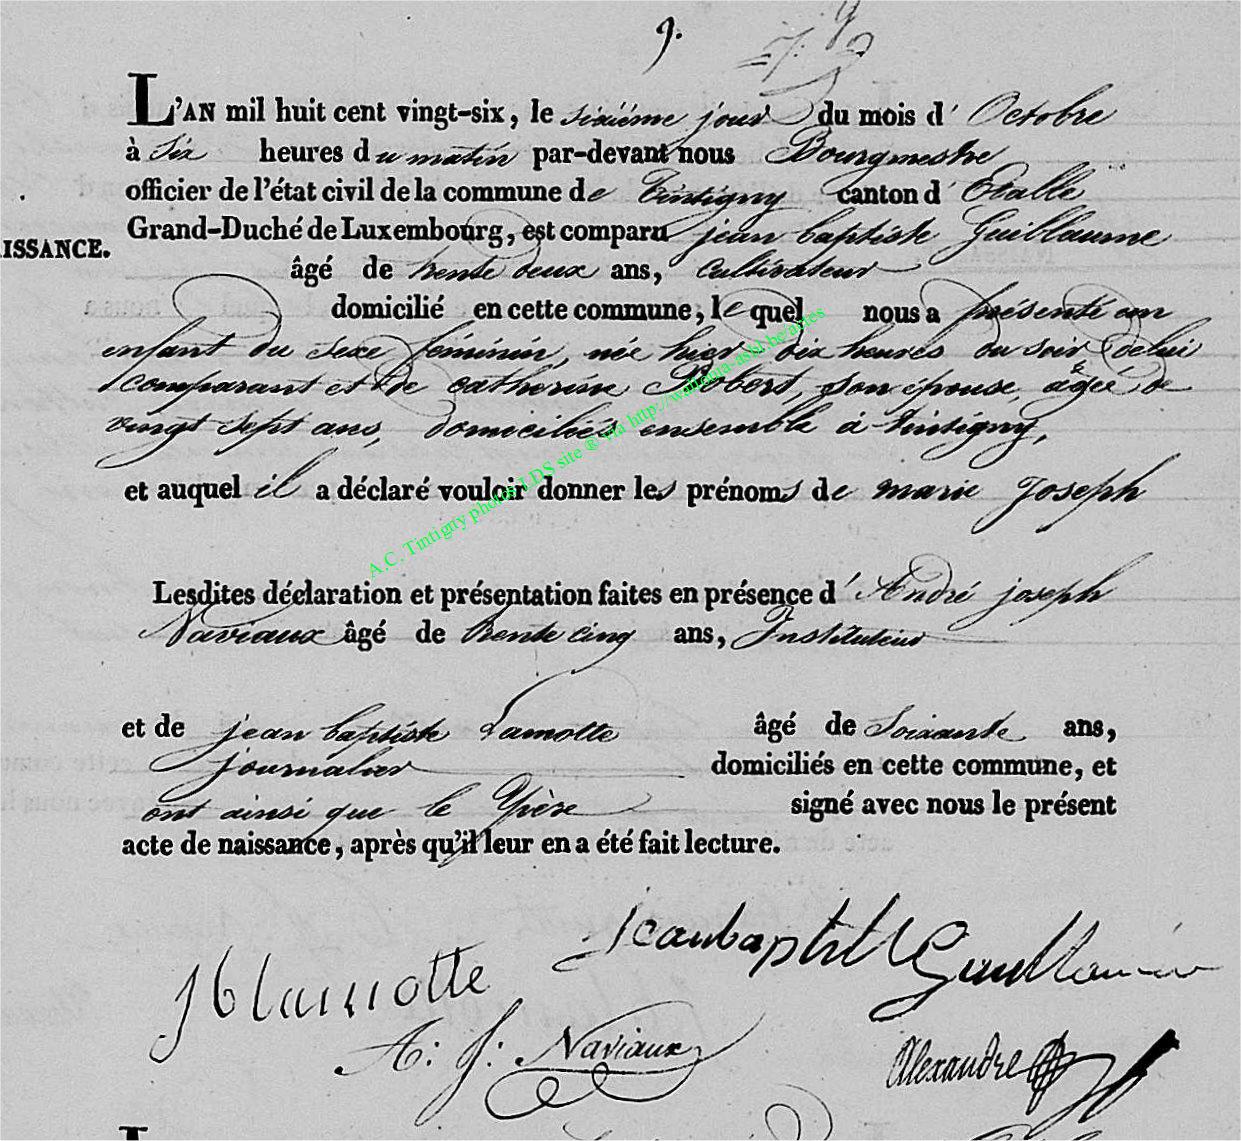 9.
L'AN mil huit cent vingt-six, le sixième jour du mois d' Octobre
à Six heures du matin par-devant nous Bourgmestre
officier de l'état civil de la commune de Tintigny canton d' Etalle
Grand-Duché de Luxembourg, est comparu jean baptiste Guillaume
ISSANCE.
âgé de trente deux ans, cultivateur
domicilié en cette commune, lequel nous a présenté un
enfant du sexe féminin, née hier dix heures du soir, de lui
comparant et de catherine Robert, son épouse, âgée de
vingt sept ans, domiciliés ensemble à tintigny,
et auquel il a déclaré vouloir donner les prénoms de marie Joseph
A.C. Tintigny photos LDS site ® via http://wallonia-asbl.be/actes
Lesdites déclaration et présentation faites en présence d' André joseph
Naviaux âgé de trente cinq ans, Instituteur
et de jean baptiste Lamotte âgé de Soixante ans,
journalier domiciliés en cette commune, et
ont ainsi que le père signé avec nous le présent
acte de naissance, après qu'il leur en a été fait lecture.
jeanbaptiste Guillaume
J b lamotte
A: J: Naviaux
Alexandre